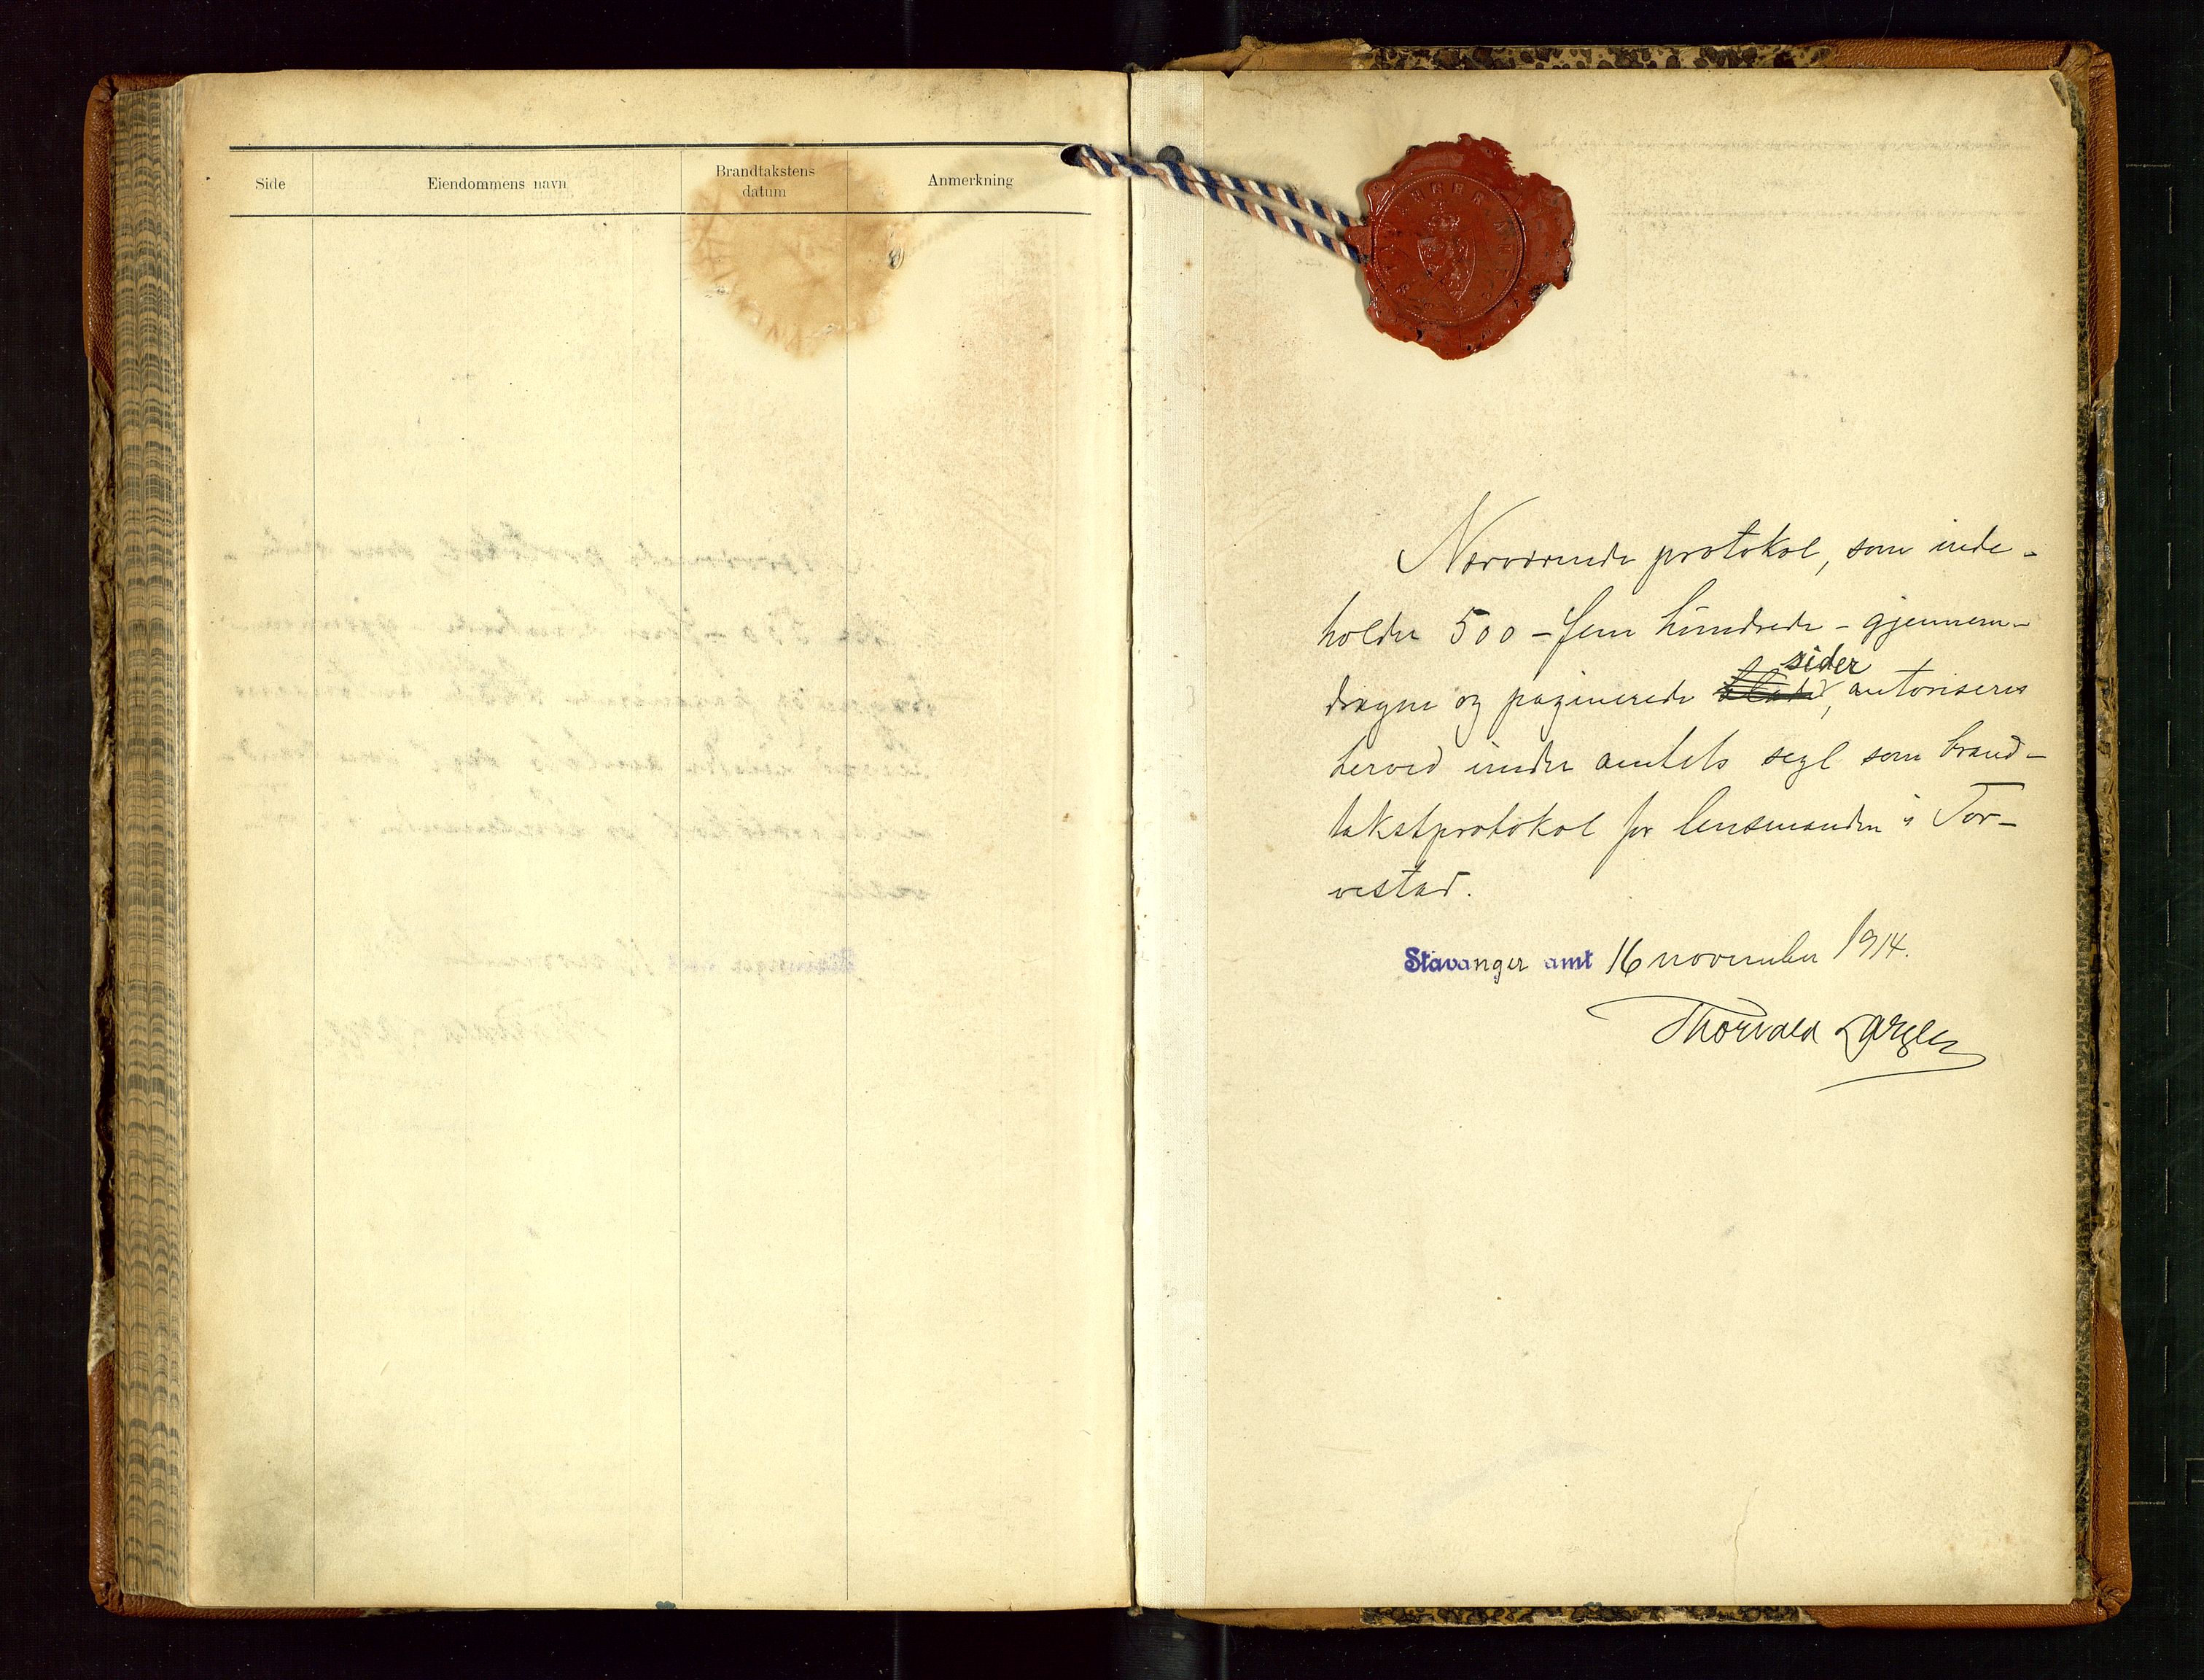 Side
Eiendommens navn
Brandtakstens
datum
Anmerkning
Nærværende protokol, som inde-
holder 500 - fem hundrede - gjennem-
dragne og paginerede blade sider, autoriseres
herved under amtets segl som brand-
takstprotokol for lensmanden i Tor-
vestad.
Stavanger amt 16 november 1914.
Thorvald